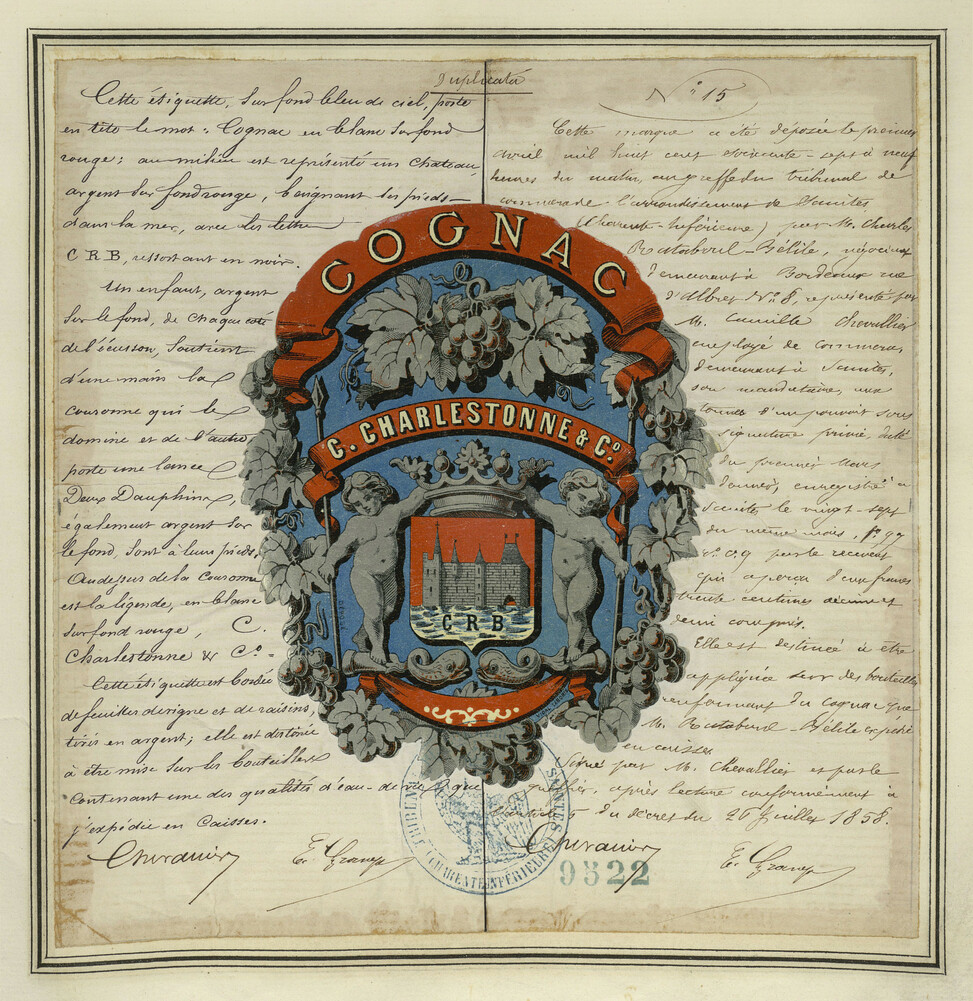 Duplicata
Cette étiquette, sur fond bleu de ciel, porte
en tête le mot : Cognac en blanc sur fond
rouge ; au milieu est représenté un chateau,
argent sur fond rouge, baignant ses pieds
dans la mer, avec les lettres
C R B, ressortant en noir.
Un enfant, argent
sur le fond, de chaque coté
de l'écusson, soutient
d'une main la
couronne qui le
domine et de l'autre
porte une lance
Deux Dauphins,
également argent sur
le fond, sont à leurs pieds.
Au dessus de la Couronne
est la légende, en blanc
sur fond rouge, C.
Charlestonne & Co.
Cette étiquette est bordée
de feuilles de vigne et de raisins,
tirés en argent ; elle est destinée
à être mise sur les bouteilles
contenant une des qualités d'eau-de-vie que
j'expédie en caisses.
N° 15
Cette marque a été déposée le premier
avril mil huit cent soixante-sept à neuf
heures du matin, au greffe du tribunal de
commerce de l'arrondissement de Saintes
(Charente-Inférieure) par M. Charles
négociant
demeurant à Bordeaux rue
d'Albret N° 8, représenté par
M. Camille Chevallier
employé de commerce,
demeurant à Saintes,
son mandataire, aux
termes d'un pouvoir sous
signature privée, daté
du premier Mars
dernier, enregistré à
Saintes le vingt-sept
du même mois, f° 99
par le receveur
qui a perçu deux francs
trente centimes décime et
demi compris.
Elle est destinée à être
appliquée sur des bouteilles
renfermant du cognac que
M. expédie
en caisses.
Signé par M. Chevallier et par le
greffier, après lecture conformément à
du décret du 26 Juillet 1858.
COGNAC
C. CHARLESTONNE & Co.
C R B
TRIBUNAL
SAINTES
(CHARENTE INFÉRIEURE)
9522